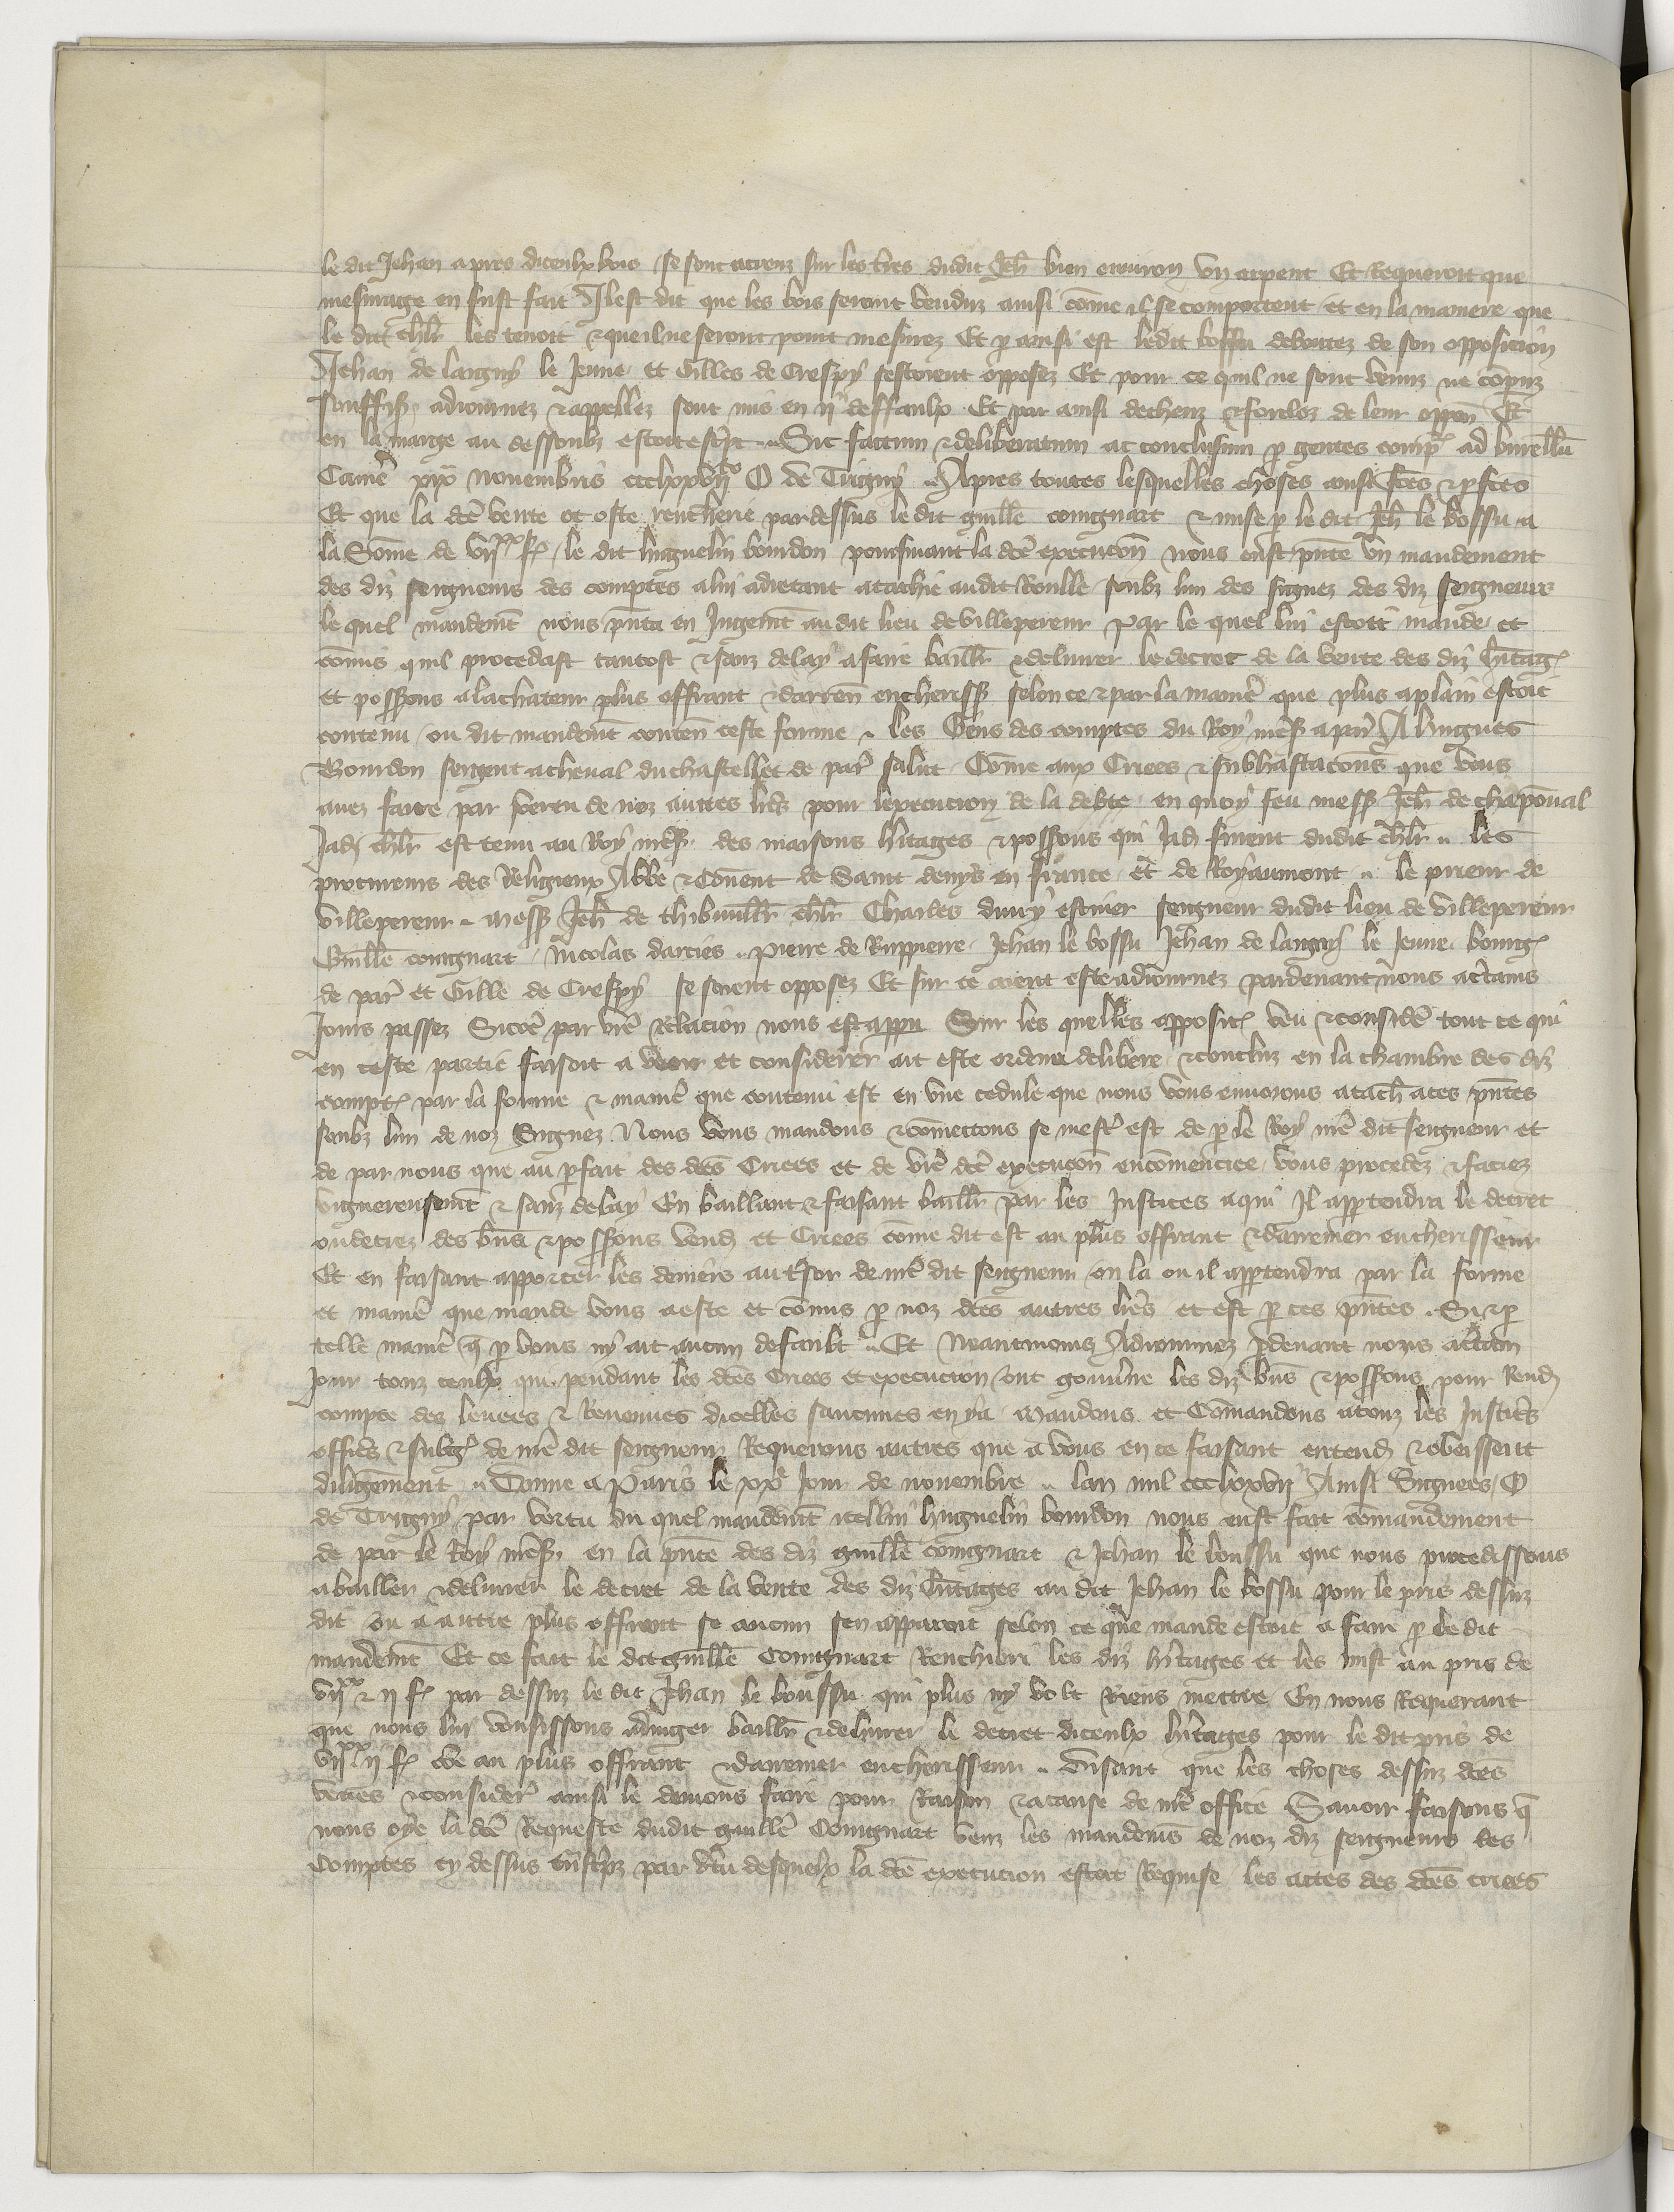 le dit Jehan apres diceulx bois se sont acreuz sur les t̄res dudit Jeh̄ bien environ un arpent Et Requeroit que
mesurage en fust fait Il est dit que les bois seront venduz ainsi cōme il se comportent et en la maniere que
le dit ch̄lr les tenoit & que il ne seront point mesurez Et p ainsi est ledit bossu deboutez de son opposicion
Jehan de laigny le Jeune et Gilles de Crespy sestoient opposez Et pour ce quil ne sont venuz ne cōpuz
souffis adiournez & appellez sont mis en ij deffaulx Et par ainsi decheuz & forcloz de leur oppōn Et
en la marge au dessoubz estoit esc̄pt Sic factum & deliberatum ac conclusum p gentes comp̄ ad burellū
Cam̄e xix novembris ccclxxvij O de Trigny Apres toutes lesquelles choses ainsi fc̄es & pfc̄es
Et que la dc̄e vente ot este rencherie par dessus le dit guille coingnart & mise p le dit Jeh̄ le bossu a
la Sōme de vijxx f le dit huguelin bourdon poursuiant la dc̄e execucōn nous eust p̄nte un mandement
des diz seigneurs des comptes a lui adrecant atachie audit Roulle soubz lun des signez des diz seigneurs
le quel mandem̄t nous p̄nta en Jugem̄t au dit lieu de villepereur Par le quel lui estoit mande et
cōmis quil procedast tantost & sanz delay a faire baillr̄ & delivrer le decret de la vente des diz h̄itag
et possions a lachateur plus offrant & derreñ encheriss selon ce & par la manie͂ que plus a plain estoit
contenu ou dit mandem̄t conteñ ceste forme les Gens des comptes du Roy nr̄es a par̄ A hugues
Bourdon sergent a cheval du chastellet de par̄ salut Cōme aux Criees & subhastacōns que vous
avez faite par vertu de noz autres lr̄es pour lexecucion de la debte en quoy feu mess Jeh̄ de chaponval
Jad ch̄lr est tenu au Roy nr̄es des maisons h̄itages & possions qui Jad furent dudit ch̄lr les
procureurs des Religieux Abbe & Couvent de Saint denys en france et de Royaumont le prieur de
villepereur mess Jeh̄ de ch̄lr Charles escuier seigneur dudit lieu de villepereur
Guille coingnart Nicolas darcies Pierre de Ruppierre Jehan le bossu Jehan de laigny le Jeune bourg
de par̄ et Gille de Crespy se soient opposez Et sur ce aient este adiournez par devant nous a c̄tains
Jours passez Sicōe par vr̄e relacion nous est appu Sur les quelles opposic veu & consideͬ tout ce qui
en ceste partie faisoit a veoir et considerer ait este ordene delibere & concluz en la chambre des diz
compt par la forme & manie͂ que contenu est en une cedule que nous vous envoions atach̄ a ces p̄ntes
soubz lun de noz Signez Nous vous mandons & cōmettons se mest̄ est de p le Roy nr̄e dit seigneur et
de par nous que au pfait des dc̄es Criees et de vr̄e dc̄e execucōn encōmenciee vous procedez & faciez
vigueureusem̄t & sanz delay En baillant & faisant baillr̄ par les Justices a qui Il apptendra le decret
ou decrez des biens & possions vend et Criees cōme dit est au plus offrant & derrenier encherisseur
Et en faisant apporter les deniers au tr̄sor de nr̄e dit seigneur ou la ou il apptendra par la forme
et manie͂ que mande vous a este et cōmis p noz dc̄es autres lr̄es et est p ces p̄ntes Si & p
telle manie͂ q̄ p vous ny ait aucun default Et Neantmoins Adiournez p devant nous a c̄tain
Jour touz ceulx qui pendant les dc̄es Criees et execucion ont gouv̄ne les diz biens & possions pour Rend
compte des levees & Revenues dicelles Mandons et Cōmandons a touz les Justic̄s
offic̄s & subg de nr̄e dit seigneur Requerons autres que a vous en ce faisant entend & obeissent
diligem̄ment Donne a Paris le xxe Jour de novembre lan mil ccclxxvij Ainsi Signees O
de Trigny par vertu du quel mandem̄t icellui huguelin bourdon nous eust fait cōmandement
de par le Roy nr̄es en la p̄nce des diz guille coingnart & Jehan le boussu que nous procedissons
a bailler & delivrer le decret de la vente des diz h̄itages au dit Jehan le bossu pour le pris dessuz
dit ou a autre plus offrant se aucun sen apparoit selon ce que mande estoit a faire p le dit
mandem̄t Et ce fait le dit guille Coingnart Renchieri les diz h̄itages et les mist au pris de
vijxx & ij f par dessuz le dit Jehan le boussu qui plus ny volt Riens mettre En nous Requerant
que nous lui vousissons adiuger baillr̄ & delivrer le decret diceulx h̄itages pour le dit pris de
vijxx ij f cōe au plus offrant & derrenier encherisseur Disant que les choses dessuz dc̄es
veues & consider̄ ainsi le devions faire pour Raison & a cause de nr̄e office Savoir faisons q̄
nous oye la dc̄e Requeste dudit guille Coingnart veuz les mandem̄s de noz diz seigneurs des
Comptes cy dessus t̄nsc̄pz par v̄tu desquelx la dc̄e execucion estoit Requise les actes des dc̄es criees